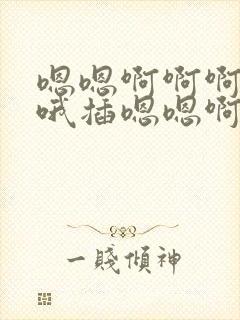 嗯嗯啊啊啊
哦插嗯嗯啊
一賤傾神